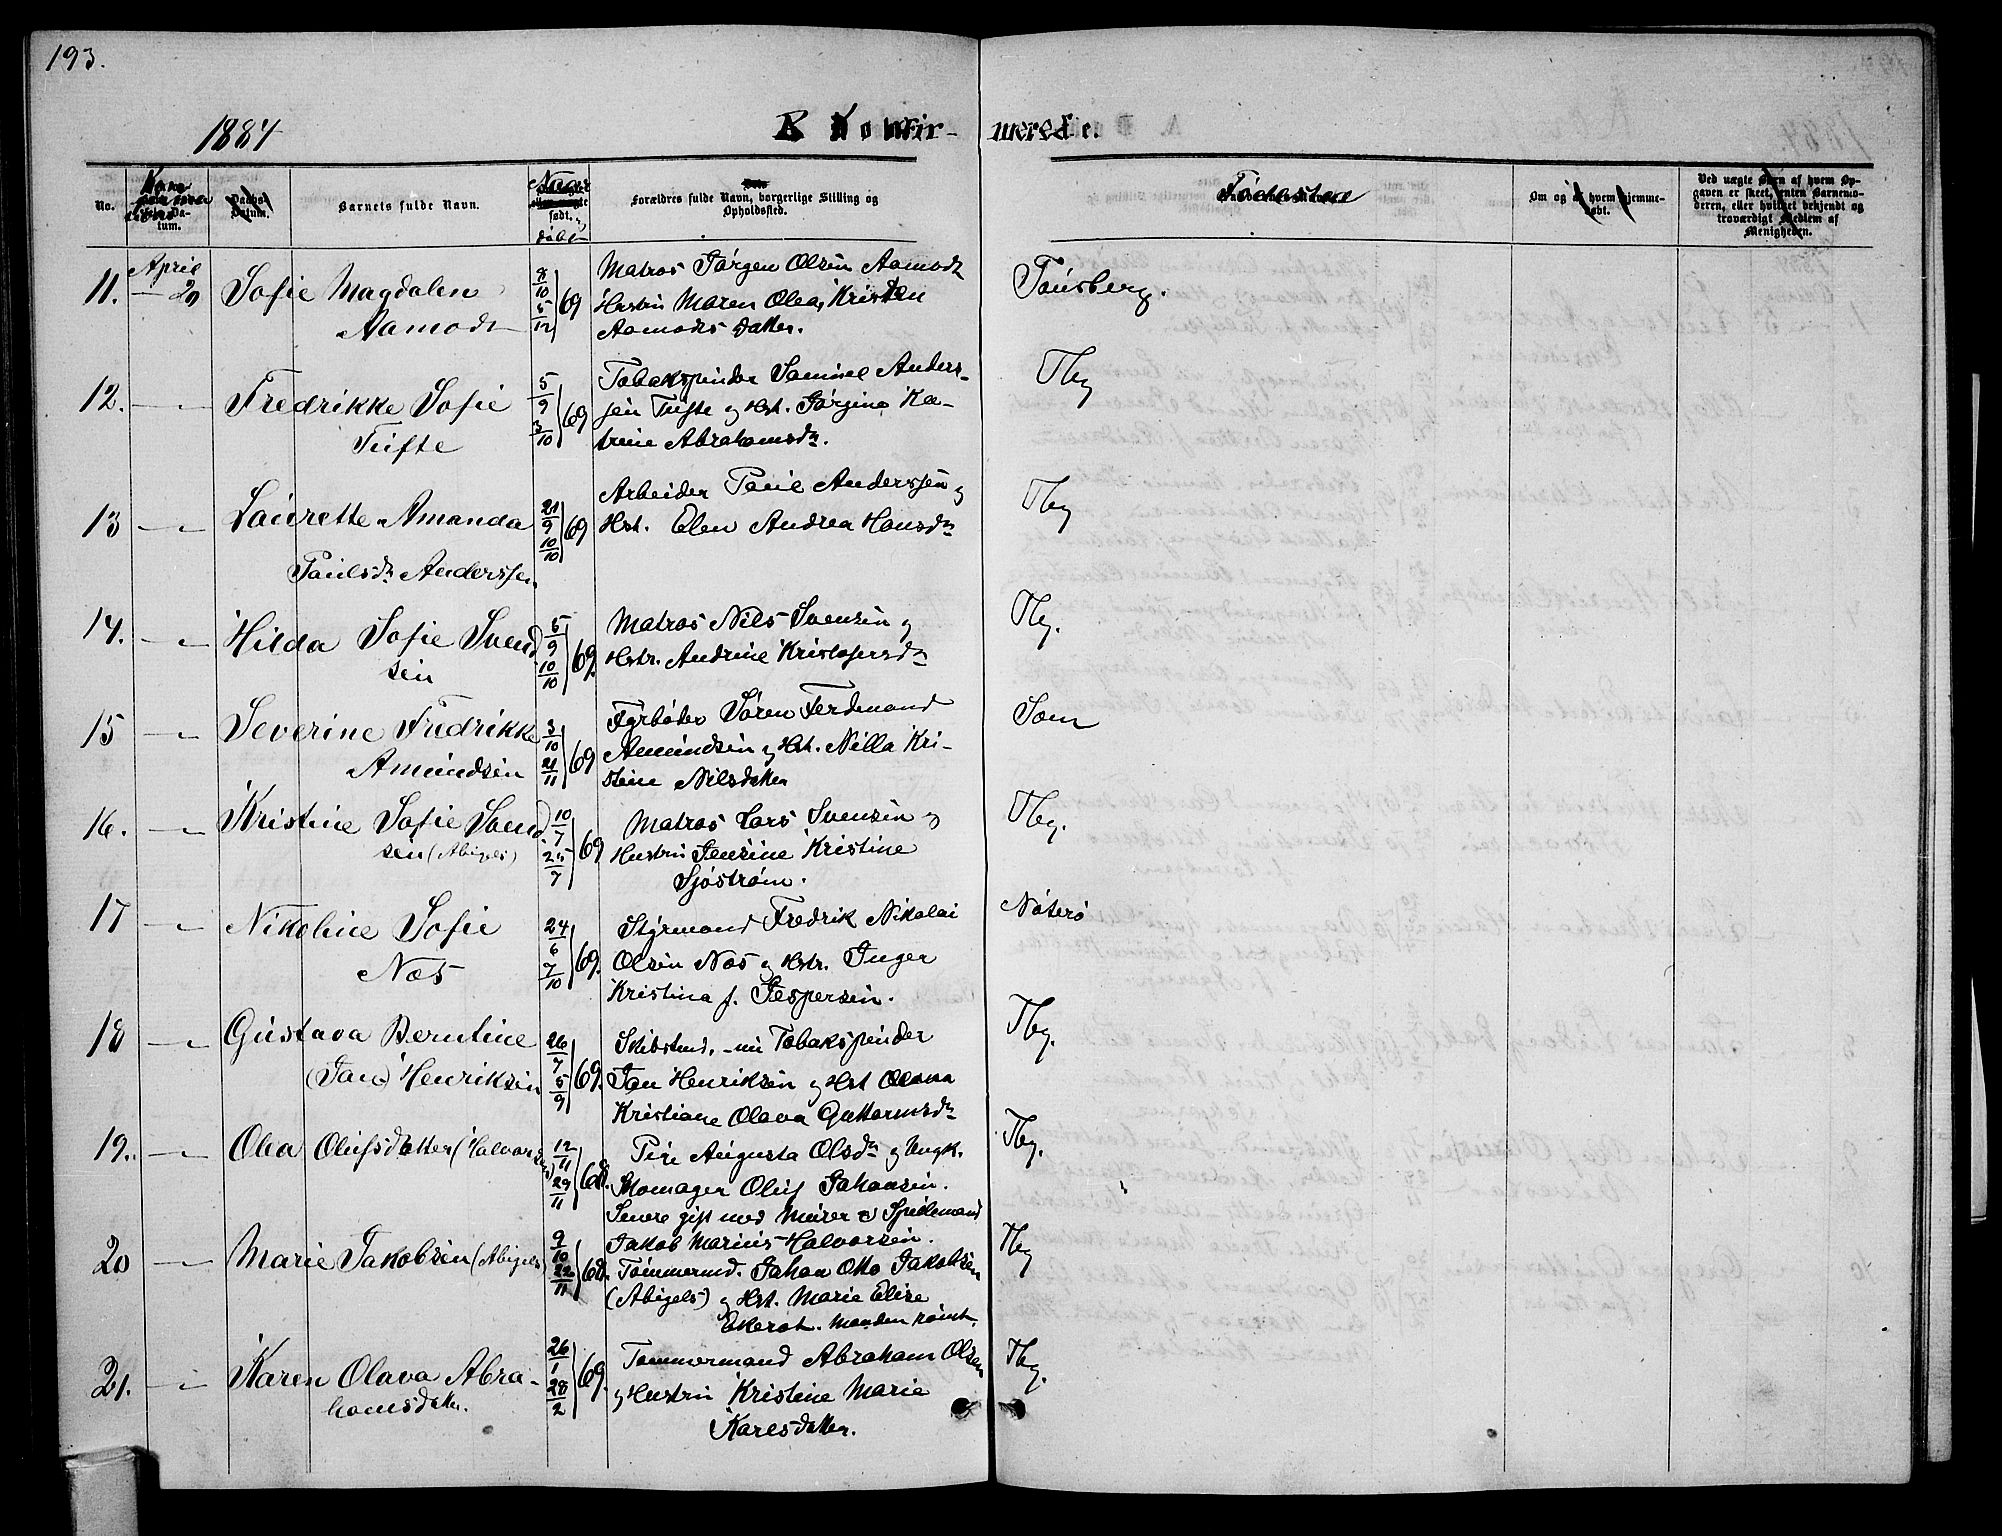 193.
1884
B Konfir-
merede.
No.
Daabs-
Datum.
Barnets fulde Navn.
Naar
født,
døbt
Forældres fulde Navn, borgerlige Stilling og
Opholdssted.
Fødested
Om og af hvem hjemme-
døbt.
Ved uægte Børn af hvem Op-
gaven er skeet, enten Barnemo-
deren, eller hvilket bekjendt og
troværdigt Medlem af
Menigheden.
11. April 20 Sofie Magdalen
Aamodt
8/10 5/12 69
Matros Jørgen Olsen Aamodt
Hustru Maren Olea, Kristen
Aamodts Datter.
Tønsberg.
12. — " Fredrikke Sofie
Tufte
5/9 3/10 69
Tobakspinder Samuel Anders-
sen Tufte og Hst. Jørgine Ka-
trine Abrahamsdr.
Tbg
13 — " Laurette Amanda
Paulsdr Anderssen
21/9 10/10 69
Arbeider Paul Anderssen og
Hst. Elen Andrea Hansdr
Tbg
14. — " Hilda Sofie Svend
sen
5/9 10/10 69.
Matros Nils Svensen og
Hstr. Andrine Kristofersdr
Tbg.
15 — " Severine Fredrikke
Amundsen
3/10 21/11 69
Fyrbøder Søren Ferdinand
Amundsen og Hst. Nilla Kri-
stine Nilsdatter
Sem
16. — " Kristine Sofie Svend
sen (Abigels)
10/7 25/7 69
Matros Lars Svensen og
Hustru Jensine Kristine
Sjøstrøm.
Tbg.
17 — " Nikoline Sofie
Næs
24/6 7/10 69.
Styrmand Fredrik Nikolai
Olsen Næs og Hstr. Inger
Kristina f. Jespersen.
Nøterø
18 — " Gustava Berntine
(Jan) Henriksen
26/7 5/9 69.
Skibstmd. - nu Tobakspinder
Jan Henriksen og Hst Olava
Kristiane Olava Guttormsdr
Tbg.
19. — " Olea Olufsdatter (Halvorsens)
12/11 29/11 68.
Pige Augusta Olsdr og Ungk.
Skomager Oluf Johansen.
Senere gift med Murer og Spillemand
Jakob Marius Halvorsen.
Tbg.
20 — " Marie Jakobsen (Abigels)
9/10 22/11 68.
Tømmermd. Johan Otto Jakobsen
(Abigels) og Hst. Marie Elise
Ekerøt. Manden rømt.
Tbg
21. — " Karen Olava Abra-
hamsdatter.
26/1 28/2 69.
Tømmermand Abraham Olsen
og Hustru Kristine Marie
Karlsdatter.
Tbg.